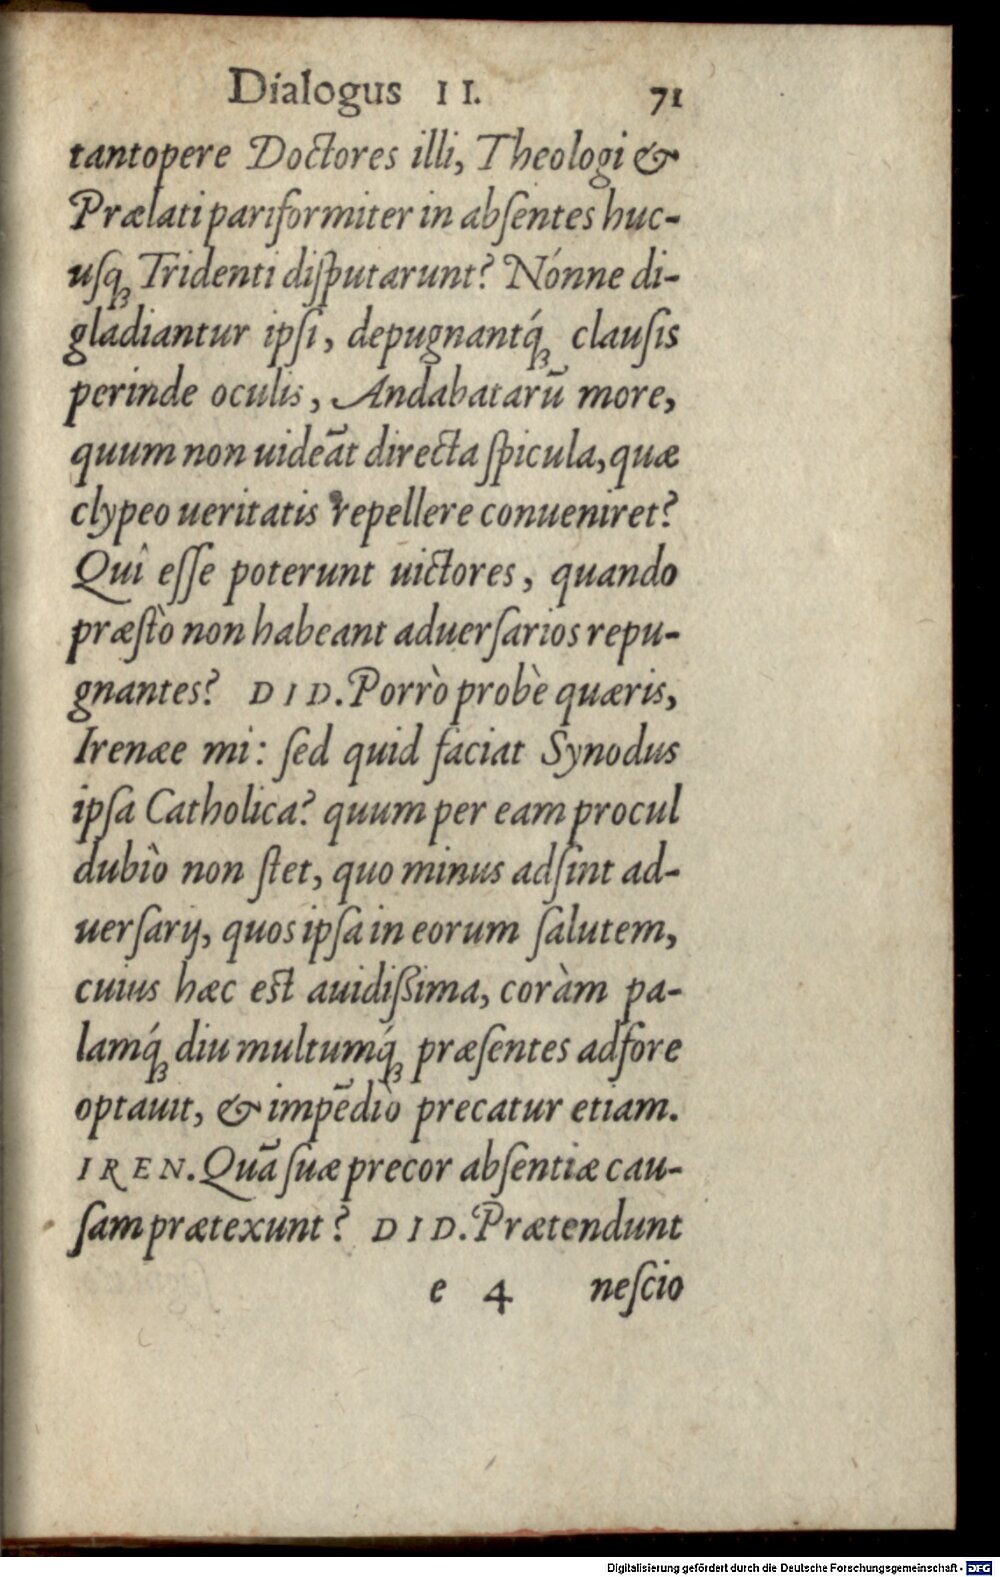 Dialogus II. 71
tantopere Doctores illi, Theologi &
Prælati pariformiter in absentes huc-
usq́ꝫ Tridenti disputarunt? Nónne di-
gladiantur ipsi, depugnantq́ꝫ clausis
perinde oculis, Andabatarū more,
quum non uideāt directa spicula, quæ
clypeo ueritatis repellere conueniret?
Quî esse poterunt uictores, quando
præstò non habeant aduersarios repu-
gnantes? DID. Porrò probè quæris,
Irenæe mi: sed quid faciat Synodus
ipsa Catholica? quum per eam procul
dubiò non stet, quo minus adsint ad-
uersarij, quos ipsa in eorum salutem,
cuius hæc est auidißima, coràm pa-
lamq́ꝫ diu multumq́ꝫ præsentes adfore
optauit, & impēdiò precatur etiam.
IREN. Quā suæ precor absentiæ cau-
sam prætexunt? DID. Prætendunt
e 4 nescio
Digitalisierung gefördert durch die Deutsche Forschungsgemeinschaft - DFG